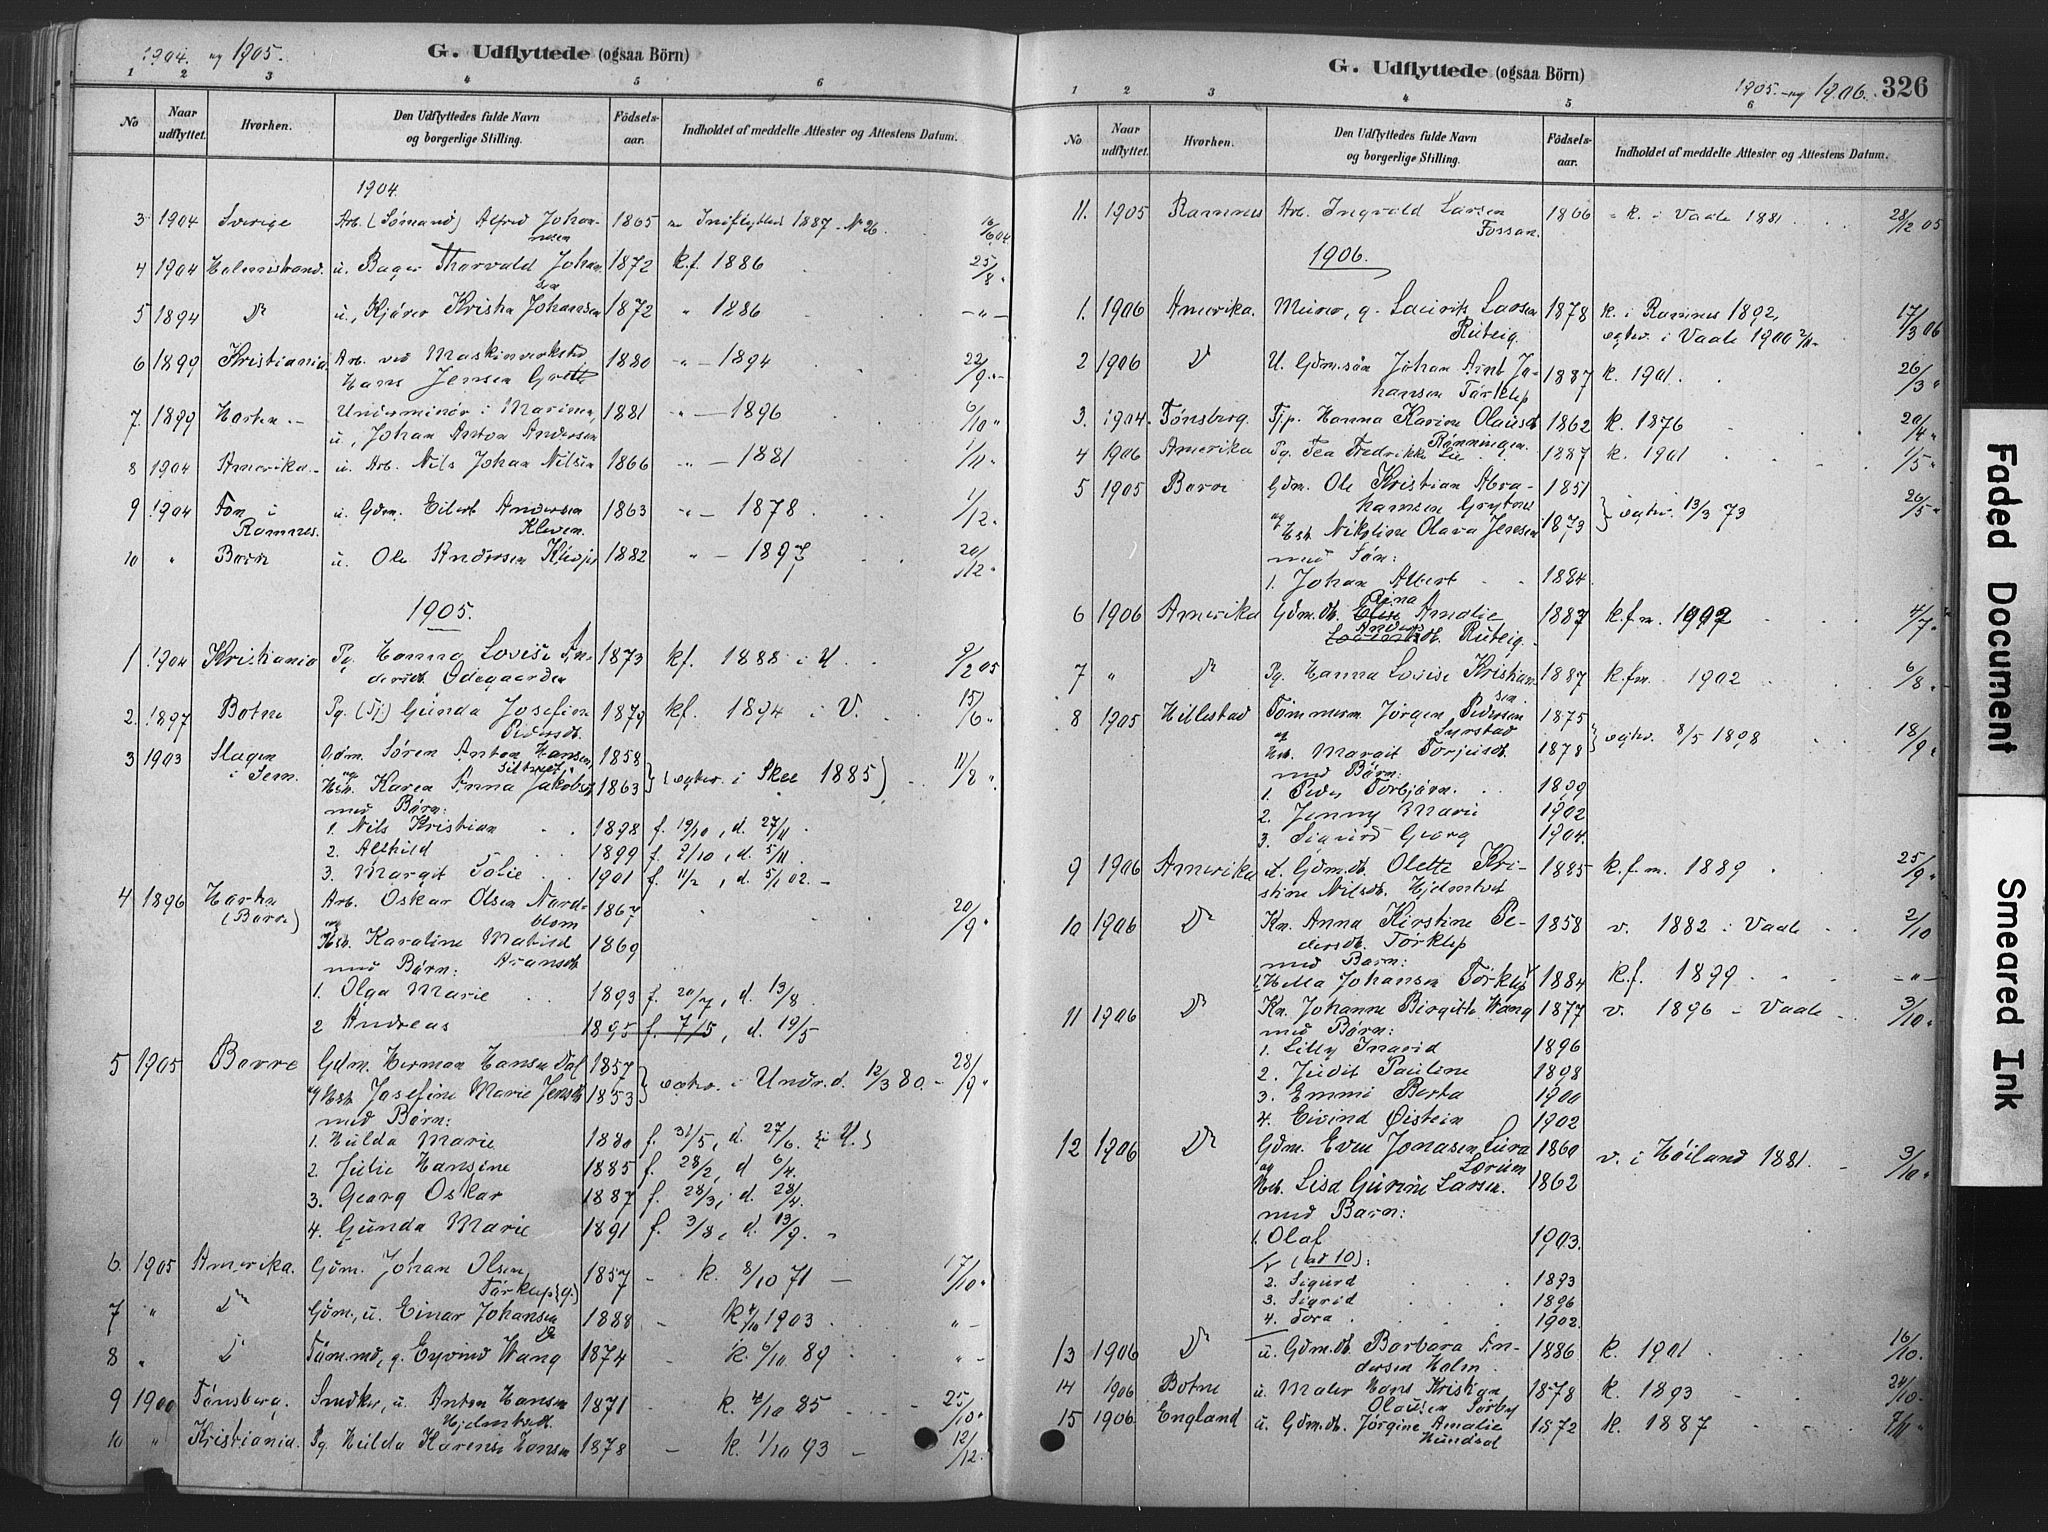 1904. og 1905.
G. Udflyttede (ogsaa Börn)
1 2 3 4 5 6
No
Naar udflyttet.
Hvorhen.
Den Udflyttedes fulde Navn og borgerlige Stilling.
Födsels-aar.
Indholdet af meddelte Attester og Attestens Datum.
1904
3 1904 Sverige Arb. (Sømand) Alfred Johan- 1865 Indflyttet 1887 N 26 16/6 04.
nesen
4 1904 Holmestrand u. Bager Thorvald Johan 1872 k.f. 1886 25/8 "
sen
5 1894 Do u., Kjører Johansen 1872 " 1886 — " —
6 1899 Kristiania Arb. ved Maskinverksted 1880 " — 1894 22/9 "
Hans Jensen
7. 1899 Horten Underminør i Marinen, 1881 " — 1896 6/10 "
u, Johan Anton Andersen
8 1904 Amerika u. Arb. Nils Johan Nilsen 1866 " — 1881 1/11 "
9 1904 Fon i u. Gdm. Eilert Andersen 1863 " — 1878 1/12 "
Ramnes. Kleven
10 " Borre u. Ole Andersen 1882 " — 1897 20/12 "
1905.
1 1904 Kristiania Pg. Hanna Lovise An- 1873 kf. 1888 i U. 9/2 05
dersdt. Ødegaarden
2. 1897 Botne Pg. (Tj) Gunda Josefine 1879 kf. 1894 i V. 15/6 "
Pedersdt.
3 1903 Slagen Gdm. Søren Anton Hansen 1858
i Sem. og
Hst. Karen Anna Jakobsd 1863 } (egtev. i Skee 1885) 11/8 "
med Børn:
1. Nils Kristian 1898 f. 19/10, d. 27/11
2. Alfhild 1899 f. 2/10, d. 5/11
3. Margit 1901 f. 11/2, d. 5/1 02.
4 1896 Horten Arb. Oskar Olsen Nord- 1867 20/9 "
(Borre) og blom
Hst. Karoline Matild 1869
med Børn:
1. Olga Marie 1893 f. 20/7, d. 13/8
2 Andreas 1895 f. 7/5, d. 19/5
5 1905 Borre Gdm. Herman Hansen Dal 1857
og Hst. Josefine Marie Jensdt 1853 } egtev. i Undr.d. 12/3 80. 28/9 "
med Børn:
1. Hulda Marie 1880 f. 31/5, d. 27/6 (i U.)
2 Julie Hansine 1885 f. 28/2, d 6/4.
3. Georg Oskar 1887 f. 28/3, d. 28/4.
4. Gunda Marie 1891 f. 3/8, d. 13/9.
6. 1905 Amerika. Gdm. Johan Olsen 1857 k. 8/10 71 17/10 "
Tørklep (g.)
7 " Do Gdm., u. Einar Johansen 1888 k 4/10 1903 " —
Do
8 " Do Tøm.md, g. Eyvind Wang 1874 k. 6/10 89 " —
9 1900 Tønsberg. Snedker, u. Anton Hansen 1871 k. 4/10 85 25/10 "
10 " Kristiania. Pg. Hulda Karense Hansen 1878 k. 1/10 93 12/12.
G. Udflyttede (ogsaa Börn)
1905. og 1906. 326
1 2 3 4 5 6
No
Naar udflyttet.
Hvorhen.
Den Udflyttedes fulde Navn og borgerlige Stilling.
Födsels-aar.
Indholdet af meddelte Attester og Attestens Datum.
11. 1905 Ramnes Arb. Ingvald Larsen 1866 k. i Vaale 1881 28/12 05
Fossan.
1906.
1. 1906 Amerika. Murer, g. Laurits Larsen 1878 k. i Ramnes 1892, 17/3 06
Ruteig. egtev. i Vaale 1900
2 1906 Do U. Gdm.søn Johan Arnt Jo- 1887 k. 1901. 26/3 "
hansen Tørklep
3. 1904 Tønsberg. Tjp. Hanna Karine Olausd 1862 k. 1876 20/4 "
Rønningen.
4 1906 Amerika Pg. Tea Fredrikke Lie 1887 k. 1901 1/5 "
5 1905 Borre Gdm. Ole Kristian Abra- 1851
hamsen Grytnes
og Hst. Nikoline Olava Jensen 1873 } egtev. 13/3 73 26/5 "
med Søn:
1. Johan Albert 1884
6 1906 Amerika Gdm.dt. Elise Amalie 1887 k.f.m. 1902 4/7 "
Anders
dt. Ruteig.
7 " Do Pg. Hanna Lovise Kristian 1887 k.f.m. 1902 6/8 "
sen
8 1905 Hillestad Tømmerm Jørgen Pedersen 1875
og Syrstad
Hst. Margit Torjusdt. 1878 } egtev. 8/5 1898 18/9 "
med Børn:
1. Peder Torbjørn. 1899
2. Jenny Marie 1902
3. Sigurd Georg 1904.
9 1906 Amerika u. Gdm.dt. Olette Kri- 1885 k.f.m. 1889 25/9 "
stine Nilsdt.
10 1906 Do Kn. Anna Kirstine Pe- 1858 v. 1882 i Vaale 2/10
dersdt. Tørklep
med Barn:
1. Johansen Tørklep 1884 k.f. 1899 — " —
11 1906 Do Kn. Johanne Birgitte Wang 1877 v. 1896 Vaale 3/10 "
med Børn:
1. Lilly Ingrid 1896
2. Judit Pauline 1898
3. Emmi Berta 1900
4. Eivind Øistein 1902
12 1906 Do Gdm. Even Jonasen Lura 1860 v. i Høiland 1881. 3/10 "
og Lorum
Hst. Lisa Gurine Larsen. 1862
med Barn:
1. Olaf 1903.
(ad 10):
2. Sigurd 1893
3. Sigrid 1896
4. Tora 1902.
13 1906 Do u. Gdm.dt. Barbara An- 1886 k. 1901 16/10.
dersen Holm
14 1906 Botne u. Maler Hans Kristian 1878 k. 1893 24/10.
Olausen Sørby
15 1906 England u. Gdm.dt. Jørgine Amalie 1872 k. 1887 7/11 "
Faded Document
Smeared Ink